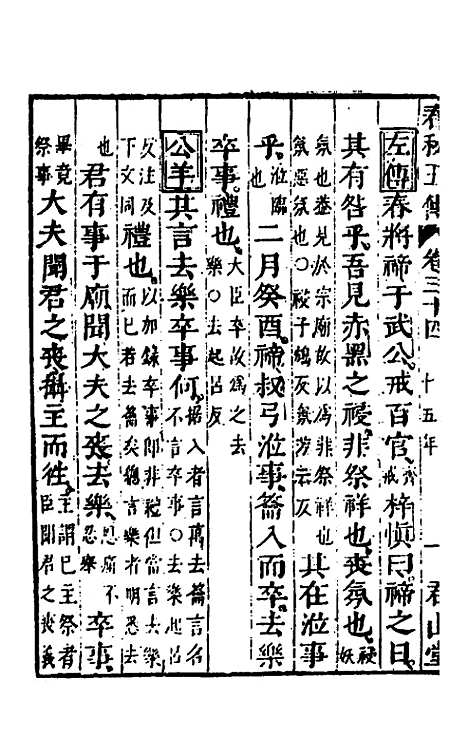 春秋五傳 卷三十四 十五年 一 君山堂
左傳春將禘于武公戒百官齊戒梓慎曰禘之日
其有咎乎吾見赤黑之祲非祭祥也喪氛也祲妖
氛也蓋見於宗廟故以爲非祭祥氛惡氛也○祲子鴆反氛芳云反其在涖事
乎涖臨也二月癸酉禘叔弓涖事籥入而卒去樂
卒事禮也大臣卒故爲之去樂○去起呂反
公羊其言去樂卒事何據入者言萬去籥言名不言卒事○去樂起呂
反注及下文同禮也以加錄卒事即非禮但當言去樂而已若去籥矣總言樂者明悉去
也君有事于廟聞大夫之喪去樂恩痛不忍舉卒事
畢竟祭事大夫聞君之喪攝主而往主謂已主祭者臣聞君之喪義